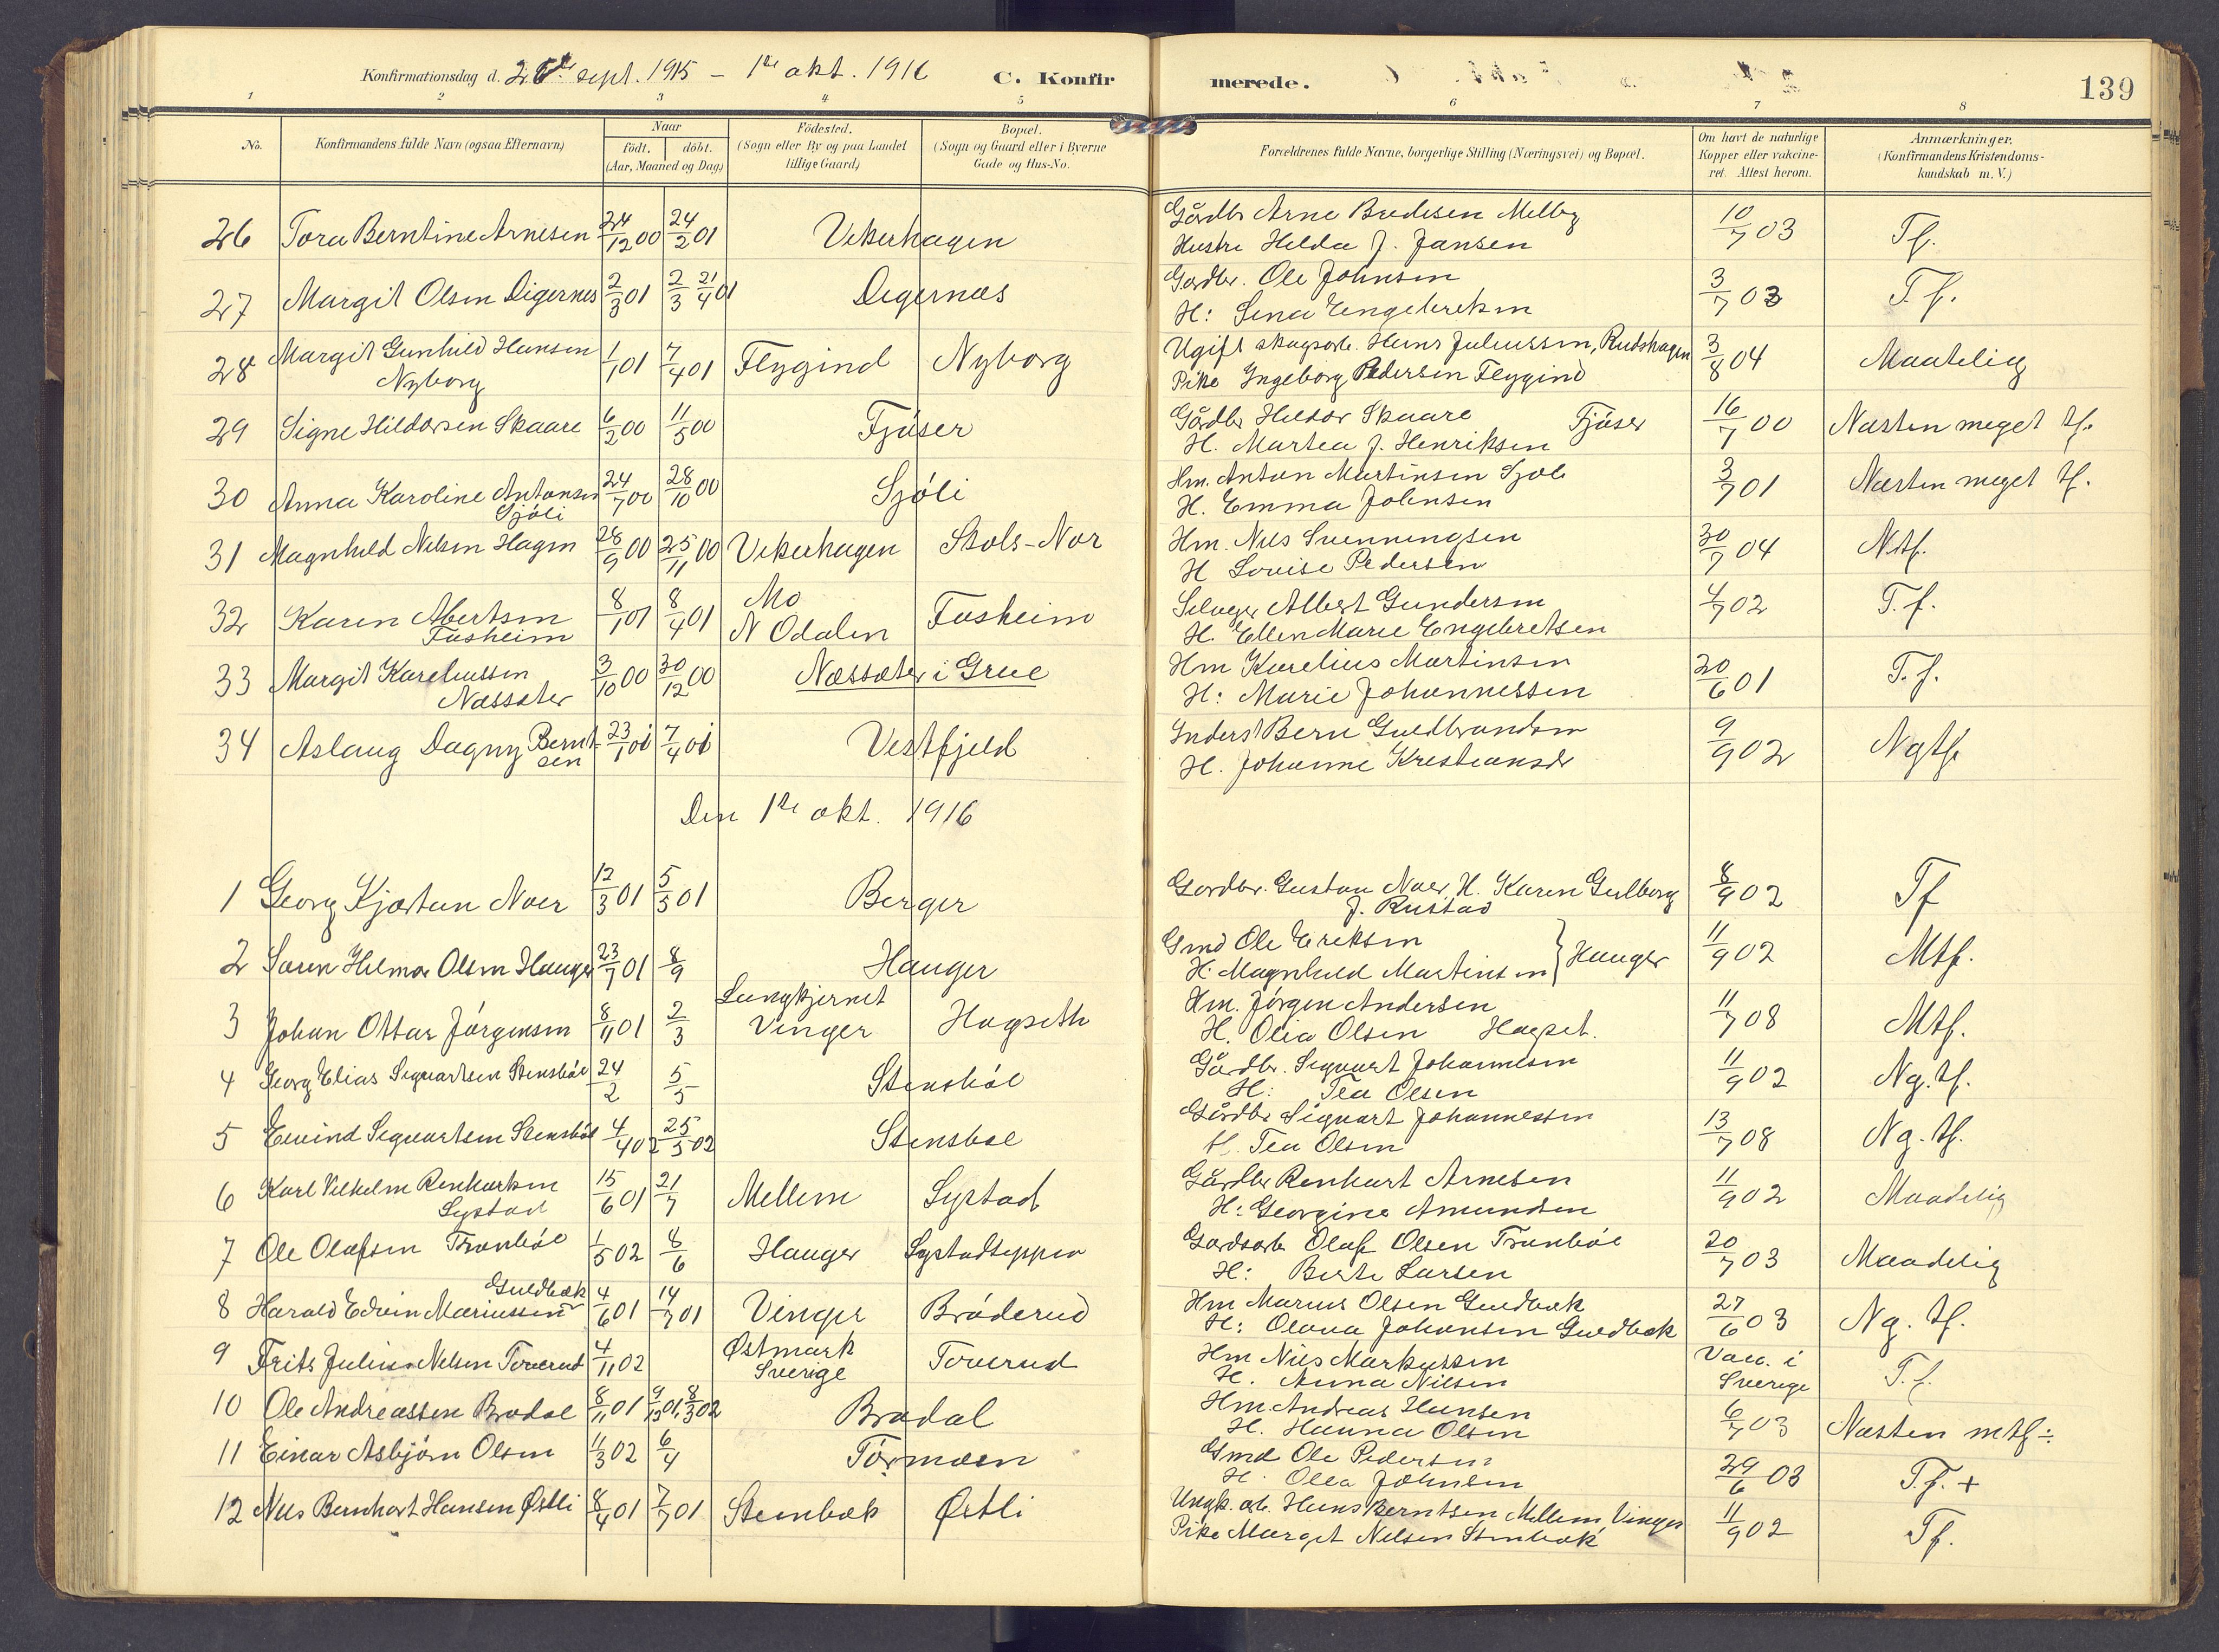 Konfirmationsdag d. 26de sept. 1915 – 1ste okt. 1916 C. Konfir merede. 139
1 2 3 4 5 6 7 8
No. Konfirmandens fulde Navn (ogsaa Efternavn) Naar födt. döbt. (Aar, Maaned og Dag) Födested. (Sogn eller By og paa Landet tillige Gaard) Bopæl. (Sogn og Gaard eller i Byerne Gade og Hus-No. Forældrenes fulde Navne, borgerlige Stilling (Næringsvei) og Bopæl. Om havt de naturlige Kopper eller vakcineret. Attest herom. Anmærkninger. (Konfirmandens Kristendomskundskab m. V.)
26 Tora Berntine Arnesen 24/12 00 24/2 01 Vikerhagen Gårdbr Arne Bredesen Melby 10/7 03 Tf.
Hustru Hilda J. Jansen
27 Margit Olsen Digernes 2/3 01 2/3 21/4 01 Digernæs Gardbr. Ole Johnsen 3/7 03 T.f.
H: Lina Engebretsen
28 Margit Gunhild Hansen 1/1 01 7/4 01 Flygind Nyborg Ugift skogsarb. Hans Juliussen, Rudshagen 3/8 04 Maatelig
Nyborg Pike Ingeborg Pedersen Flygind
29 Signe Hildorsen Skaare 6/2 00 11/5 00 Fjöser Gårdbr Hildor Skaare Fjöser 16/7 00 Næsten meget tf.
H. Martea J. Henriksen
30 Anna Karoline Antonsen 24/7 00 28/10 00 Sjöli Hm. Anton Martinsen Sjöli 3/7 01 Næsten meget tf.
Sjöli H. Emma Johnsen
31 Magnhild Nilsen Hagen 28/9 00 25/11 00 Vikerhagen Skols-Nor Hm. Nils Svenningsen 30/7 04 Ntf.
H Lovise Pedersen
32 Karen Albertsen 8/1 01 8/4 01 Mo Fusheim Selveger Albert Gundersen 4/7 02 T.f.
Fusheim N Odalen H. Ellen Marie Engebretsen
33 Margit Kareliussen 3/10 00 30/12 00 Næssæter i Grue Hm Karelius Martinsen 20/6 01 T.f.
Næssæter H: Marie Johannessen
34 Aslaug Dagny Berntsen 23/1 01 7/4 01 Vestfjeld Inderst Bern Guldbrandsen 9/9 02 Ngtf
H. Johanne Kristiansdr
Den 1ste okt. 1916
1 Georg Kjartan Noer 12/3 01 5/5 01 Berger Gardbr. Gustav Noer, H. Karen Gulborg 8/9 02 Tf
J. Rustad
2 Søren Hilmar Olsen Hauger 23/7 01 8/9 Hauger Gmd Ole Eriksen } Hauger 11/9 02 Mtf.
H. Magnhild Martinsen
3 Johan Ottar Jörgensen 8/11 01 2/3 Lungkjernet Vinger Hagseth Hm. Jörgen Andersen 11/7 08 Mtf.
H. Olia Olsen Hagset.
4 Georg Elias Sigvartsen Stensböl 24/2 5/5 Stensböl Gårdbr. Sigvart Johannesen 11/9 02 Ng. tf.
H: Tea Olsen
5 Eivind Sigvartsen Stensböl 4/4 02 25/5 02 Stensböl Gårdbr Sigvart Johannessen 13/7 08 Ng. tf.
H. Tea Olsen
6 Karl Vilhelm Renhartsen 15/6 01 21/7 Mellem Systad Gårdbr Renhart Arnesen 11/9 02 Maadelig
Systad H: Georgine Amundsen
7 Ole Olafsen Tranböl 1/5 02 8/6 Hauger Systadseppen Gardsarb Olaf Olsen Tranböl 20/7 03 Maadelig
H: Berte Larsen
8 Harald Edvin Mariussen Guldbæk 4/6 01 14/7 01 Vinger Bröderud Hm Marius Olsen Guldbæk 27/6 03 Ng. tf.
H: Olava Johansen Guldbæk
9 Frits Julius Nilsen Toverud 4/11 02 Østmark Sverige Toverud Hm Nils Markussen Vacc. i Sverige T.f.
H. Anna Nilsen
10 Ole Andreassen Bradal 8/11 01 9/12 01, 8/3 02 Bradal Hm. Andreas Hansen 6/7 03 Næsten mtf ÷
H. Hanna Olsen
11 Einar Asbjörn Olsen 11/3 02 6/4 Törmoen Gmd Ole Pedersen 29/6 03 T.f. +
H. Olea Johnsen
12 Nils Bernhart Hansen Østli 8/4 01 7/7 01 Stembæk Østli Ungk. arb. Hans Berntsen Mellem Vinger 11/9 02 Tf.
Pike Margit Nilsen Stenbæk